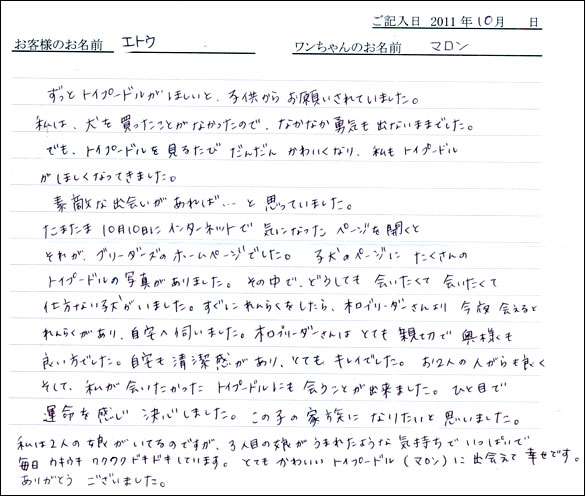 ご記入日 2011年10月 日
お客様のお名前 エトウ ワンちゃんのお名前 マロン
ずっと トイプードルが ほしいと、子供から お願いされていました。
私は、犬を買ったことがなかったので、なかなか勇気も出ないままでした。
でも、トイプードルを見るたび だんだん かわいくなり、私もトイプードル
がほしくなってきました。
素敵な出会いがあれば…と思っていました。
たまたま10月10日にインターネットで気になったページを開くと
それが、ブリーダーズのホームページでした。 子犬のページに たくさんの
トイプードルの写真がありました。その中で、どうしても 会いたくて 会いたくて
仕方ない子犬がいました。すぐにれんらくをしたら、木口ブリーダーさんより 今夜 会えると
れんらくがあり、自宅へ伺いました。木口ブリーダーさんは とても 親切で 奥様も
良い方でした。自宅も清潔感があり、とても キレイでした。 お2人の人がらも良く
そして、私が会いたかった トイプードルにも 会うことが出来ました。ひと目で
運命を感じ 決心しました。 この子の家族に なりたいと 思いました。
私は2人の娘がいてるのですが、3人目の娘がうまれたような 気持ちで いっぱいで
毎日 ウキウキ ワクワク ドキドキ しています。 とても かわいい トイプードル (マロン) に 出会えて 幸せです。
ありがとう ございました。